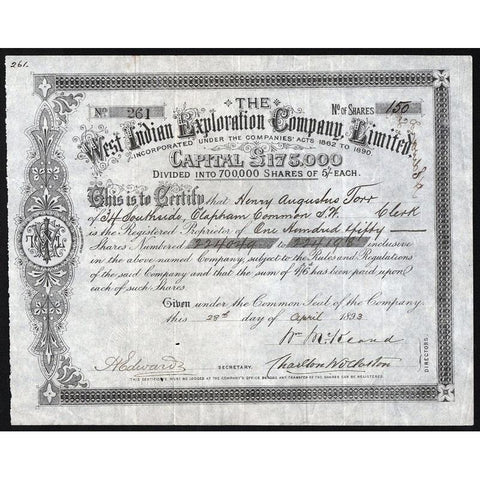 261.
No 261
No OF SHARES 150
THE
West Indian Exploration Company, Limited.
INCORPORATED UNDER THE COMPANIES' ACTS 1862 TO 1890.
CAPITAL £175,000
DIVIDED INTO 700,000 SHARES OF 5/- EACH.
This is to Certify that Henry Augustus Torr
of 34 Southside, Clapham Common S.W. Clerk
is the Registered Proprietor of One Hundred Fifty
Shares Numbered to inclusive
in the above named Company, subject to the Rules and Regulations
of the said Company and that the sum of 4/6d has been paid upon
each of such Shares.
Given under the Common Seal of the Company
this 28th day of April 1893
Wm McKeand
SECRETARY.
DIRECTORS.
THIS CERTIFICATE MUST BE LODGED AT THE COMPANY'S OFFICE BEFORE ANY TRANSFER OF THE SHARES CAN BE REGISTERED.